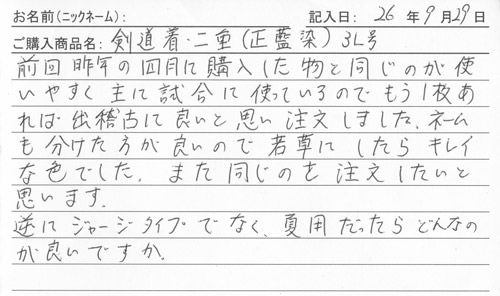 お名前(ニックネーム): 記入日: 26 年 9 月 29 日
ご購入商品名: 剣道着・二重(正藍染)3L号
前回昨年の四月に購入した物と同じのが使
いやすく主に試合に使っているのでもう1枚あ
れば出稽古に良いと思い注文しました。ネーム
も分けた方が良いので若草にしたらキレイ
な色でした。また同じのを注文したいと
思います。
逆にジャージタイプでなく、夏用だったらどんなの
が良いですか。